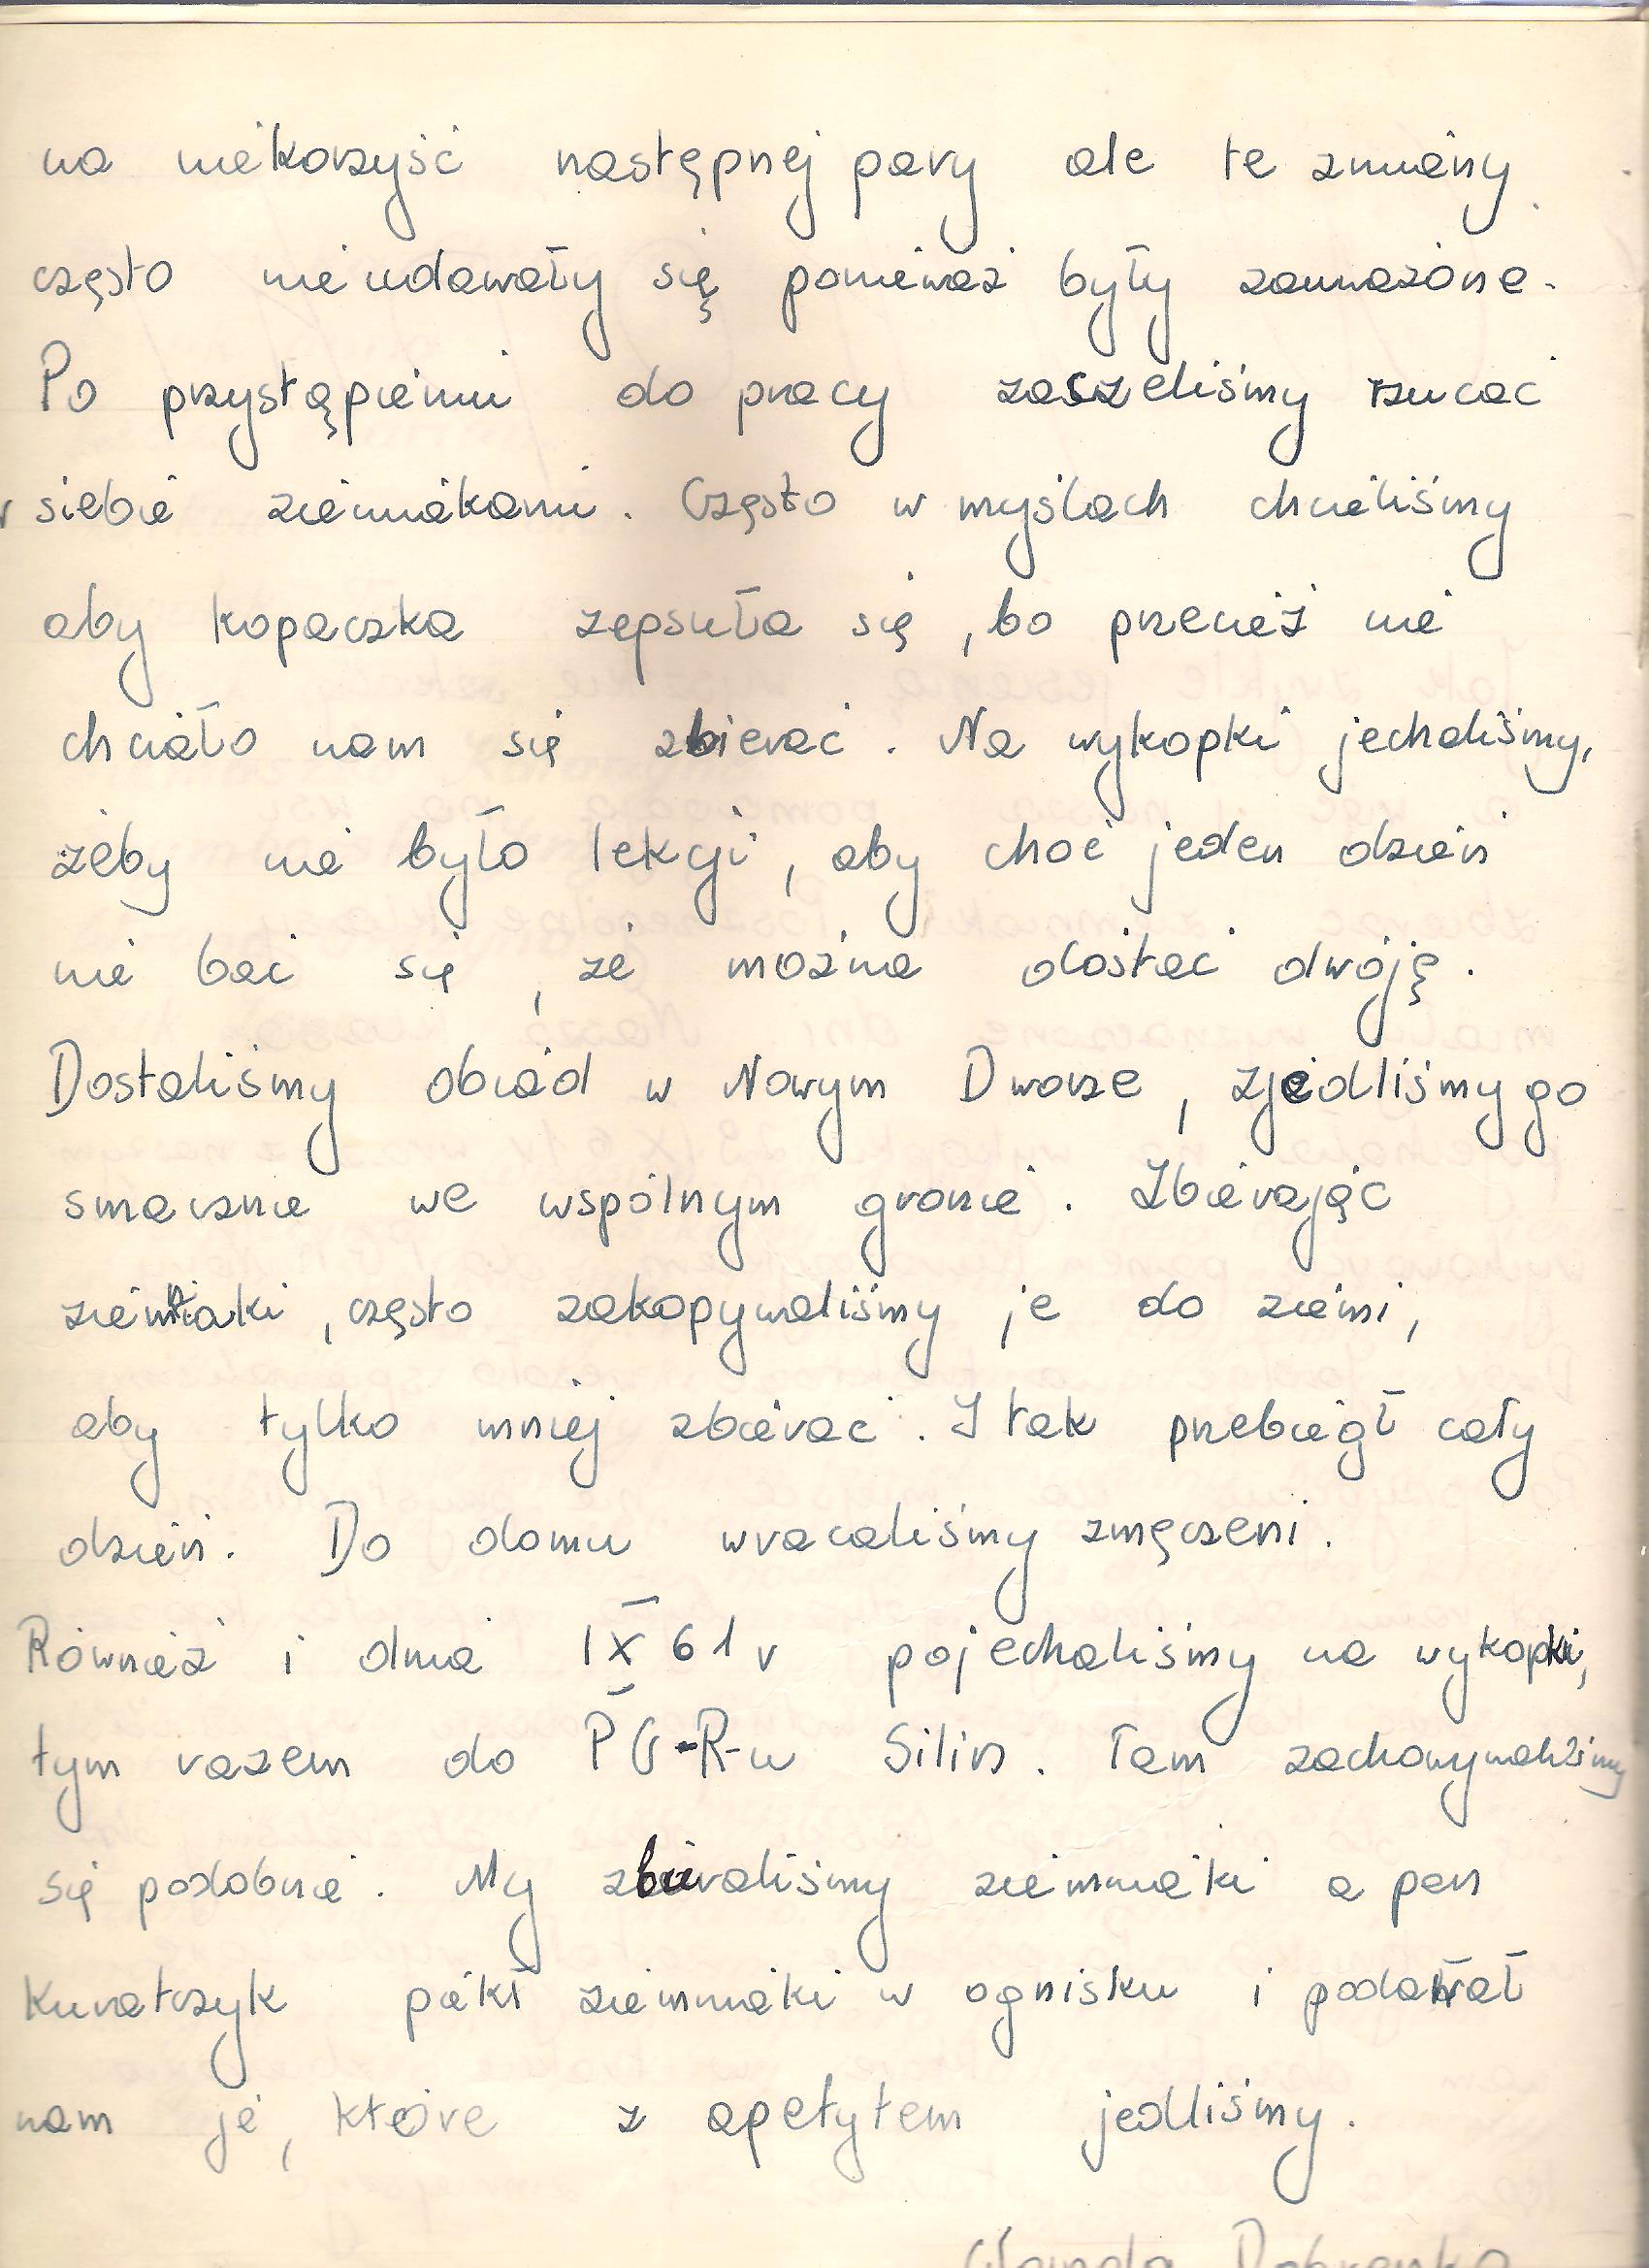 na niekorzyść następnej pary ale te zmiany
często nie udawały się ponieważ były zauważone.
Po przystąpieniu do pracy zaczeliśmy rzucać
w siebie ziemniakami. Często w myślach chcieliśmy
aby kopaczka zepsuła się, bo przecież nie
chciało nam się zbierać. Na wykopki jechaliśmy,
żeby nie było lekcji, aby choć jeden dzień
nie bać się, że można dostać dwóję.
Dostaliśmy obiad w Nowym Dworze, zjedliśmy go
smacznie we wspólnym gronie. Zbierając
ziemniaki, często zakopywaliśmy je do ziemi,
aby tylko mniej zbierać. I tak przebiegł cały
dzień. Do domu wracaliśmy zmęczeni.
Również i dnia IX 61 r pojechaliśmy na wykopki,
tym razem do PG-R-u Silin. Tam zachowywaliśmy
się podobnie. My zbieraliśmy ziemniaki a pan
Kuratczyk piekł ziemniaki w ognisku i podawał
nam je, które z apetytem jedliśmy.